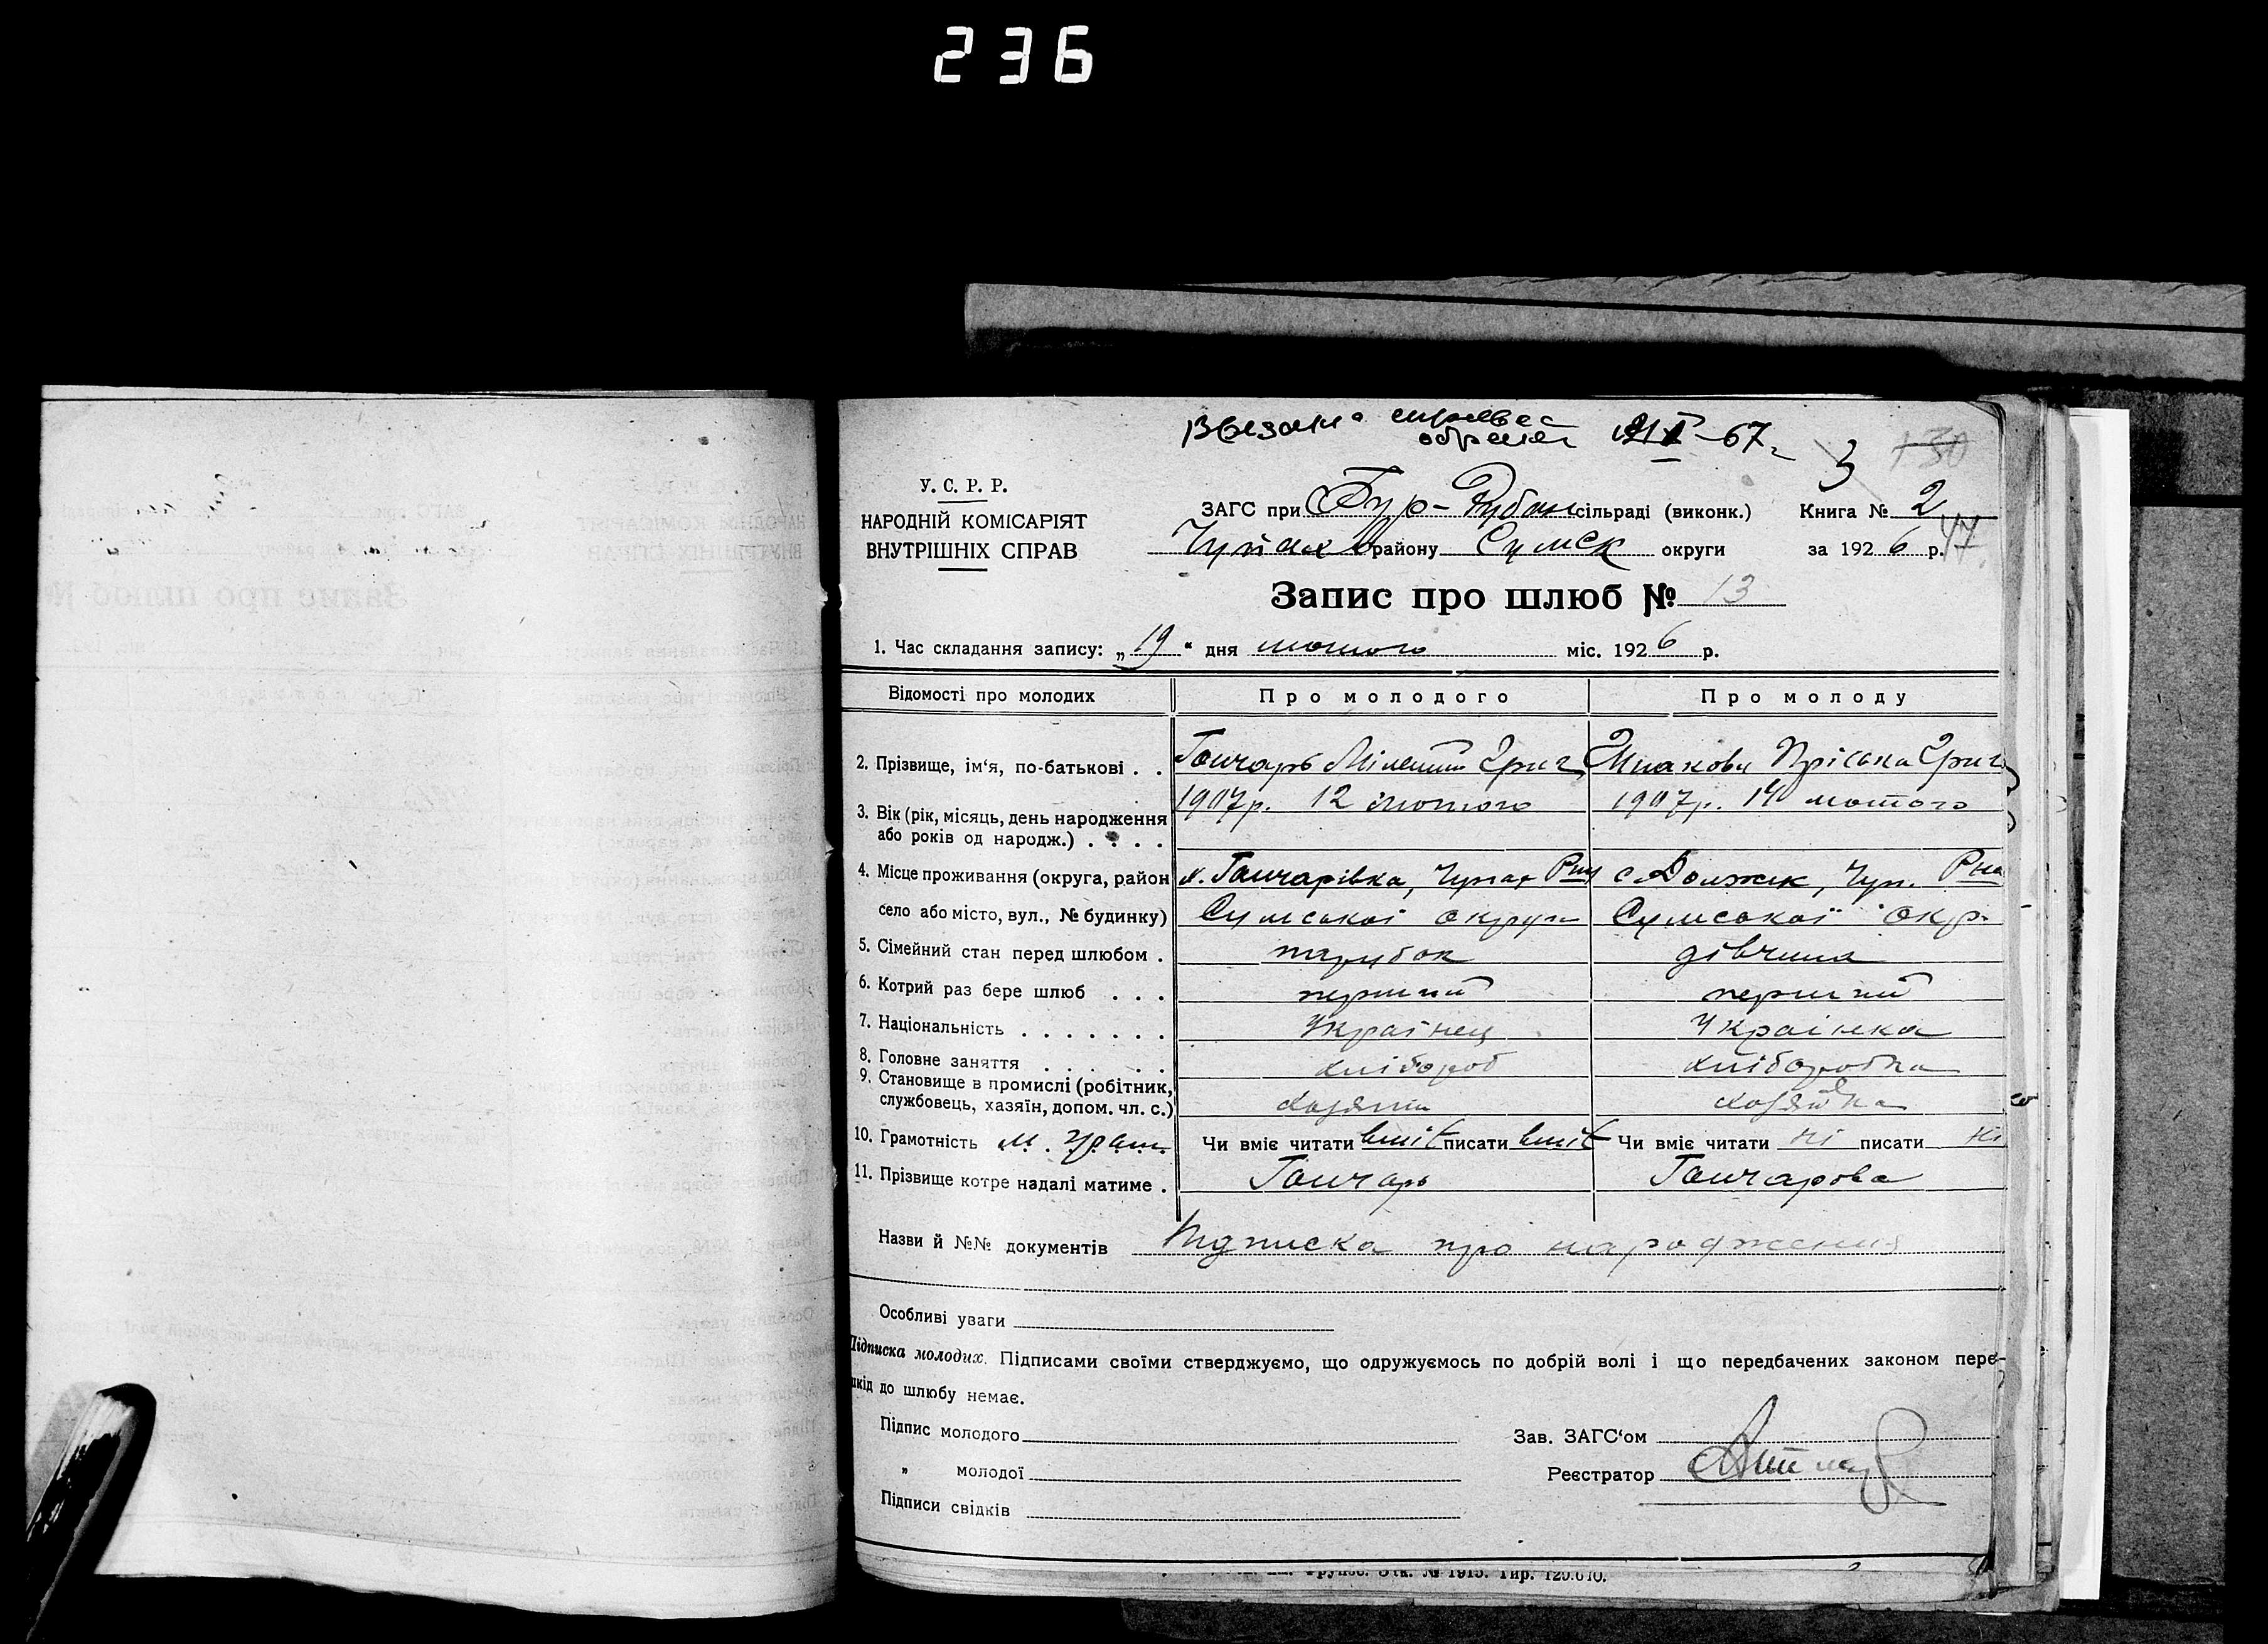 236
справка
67
3
130
У. С. Р. Р.
НАРОДНІЙ КОМІСАРІЯТ
ВНУТРІШНІХ СПРАВ
ЗАГС при Бур-Рубан сільраді (виконк.) Книга № 2
Чупах району Сумск округи за 1926 р.
47.
Запис про шлюб № 13
1. Час складання запису: „19“ дня лютого міс. 1926 р.
Відомості про молодих Про молодого Про молоду
2. Прізвище, ім‘я, по-батькові . . Гончарь Григ Пріська Григ
3. Вік (рік, місяць, день народження 1907 р. 12 лютого 1907 р. 14 лютого
або років од народж.) . . . .
4. Місце проживання (округа, район х. Гончарівка, Чупах Рну с. Должик, Чуп. Рна
село або місто, вул., № будинку) Сумської округи Сумської окр.
5. Сімейний стан перед шлюбом . парубок дівчина
6. Котрий раз бере шлюб . . . перший перший
7. Національність . . . . . . . Українец Українка
8. Головне заняття . . . . . хлібороб хліборобка
9. Становище в промислі (робітник,
службовець, хазяїн, допом. чл. с.) хазяїн хазяйка
10. Грамотність м. грам. Чи вміє читати вміє писати вміє Чи вміє читати ні писати ні
11. Прізвище котре надалі матиме . Гончарь Гончарова
Назви й №№ документів Підписка про народження
Особливі уваги
Підписка молодих. Підписами своїми стверджуємо, що одружуємось по добрій волі і що передбачених законом пере-
шкід до шлюбу немає.
Підпис молодого Зав. ЗАГС‘ом
„ молодої Реєстратор
Підписи свідків
№ 1915. Тир. 125.010.